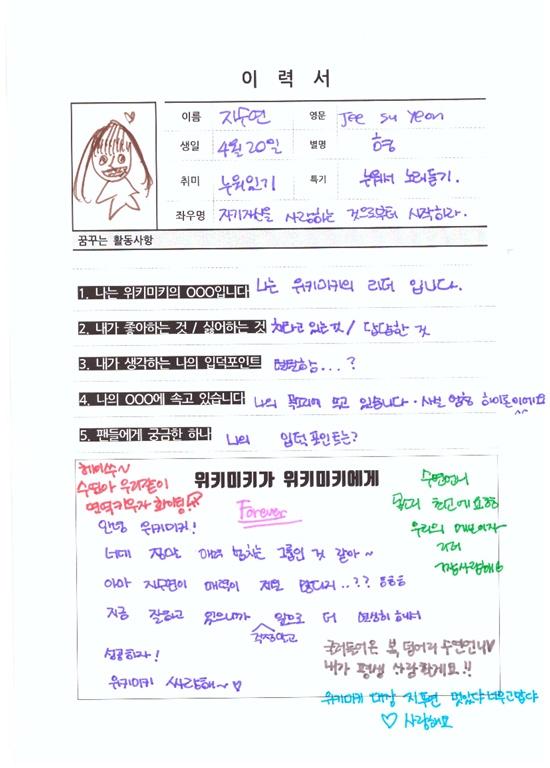 이 력 서
이름 지수연 영문 Jee Su Yeon
생일 4월 20일 별명 흐헝
취미 누워있기 특기 누워서 노래듣기.
좌우명 자기자신을 사랑하는 것으로부터 시작하라.
꿈꾸는 활동사항
1. 나는 위키미키의 OOO입니다 나는 위키미키의 리더 입니다.
2. 내가 좋아하는 것 / 싫어하는 것 쳐다보고 있는 것 / 답답한 것
3. 내가 생각하는 나의 입덕포인트 털털함...?
4. 나의 OOO에 속고 있습니다 나의 에 속고 있습니다. 사실 엄청 하이톤이에요
5. 팬들에게 궁금한 하나 나의 입덕포인트는?
위키미키가 위키미키에게
헤이쑤~
수연아 우리같이
근력키우자 화이팅
Forever
수연언니
최고에요
우리의
짱 사랑해요
안녕 위키미키!
너네 정말 매력 넘치는 그룹인 것 같아~
아마 지수연이 매력이 제일 많다지..?? ㅎㅎㅎ
지금 잘하고 있으니까 걱정말고 앞으로 더 열심히 해서
성공하자!
위키미키 싸랑해~♡
굴러들어온 복 덩어리 수연언니♡
내가 평생 사랑할게요!!
위키미키 대장 지수연 멋있다 너무 고맙다
♡ 사랑해요